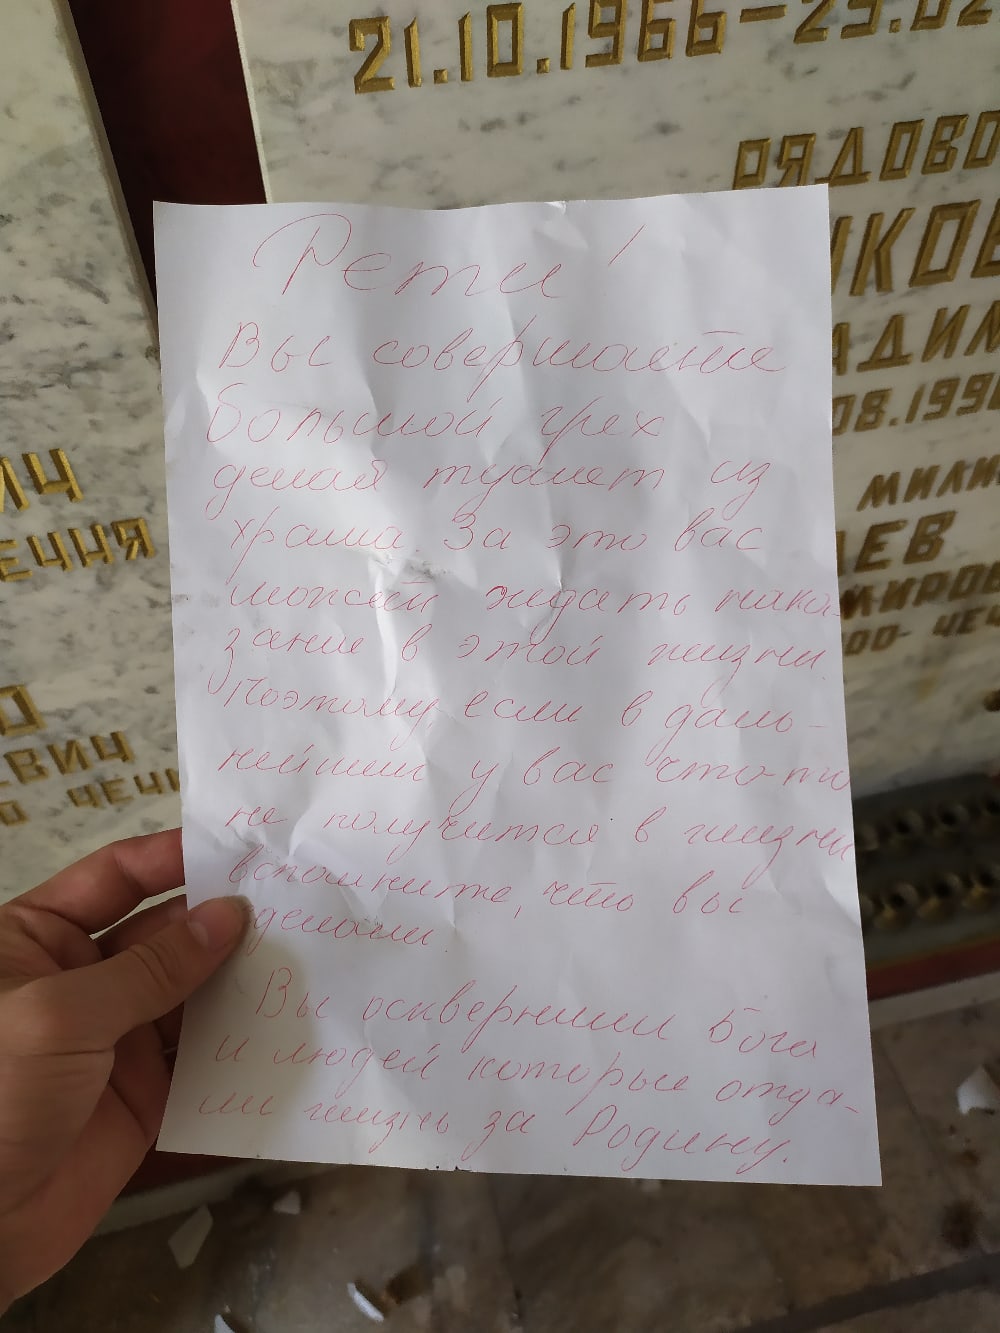 21.10.1966-23.02
РЯДОВО
ИКОВ
АДИМ
.08.1996
МИЛИ
АЕВ
МИРОВ
ООО- ЧЕЧ
ИЧ
ЕЧНЯ
О
ЕВИЧ
О ЧЕЧН
Рети!
Вы совершаете
большой грех
делая туалет из
храма За это вас
можей ждать нака-
зание в этой жизни.
Поэтому если в даль-
нейшим у вас что-то
не получится в жизни
вспомните, что вы
делали.
Вы осквернили Бога
и людей которые отда-
ли жизнь за Родину.